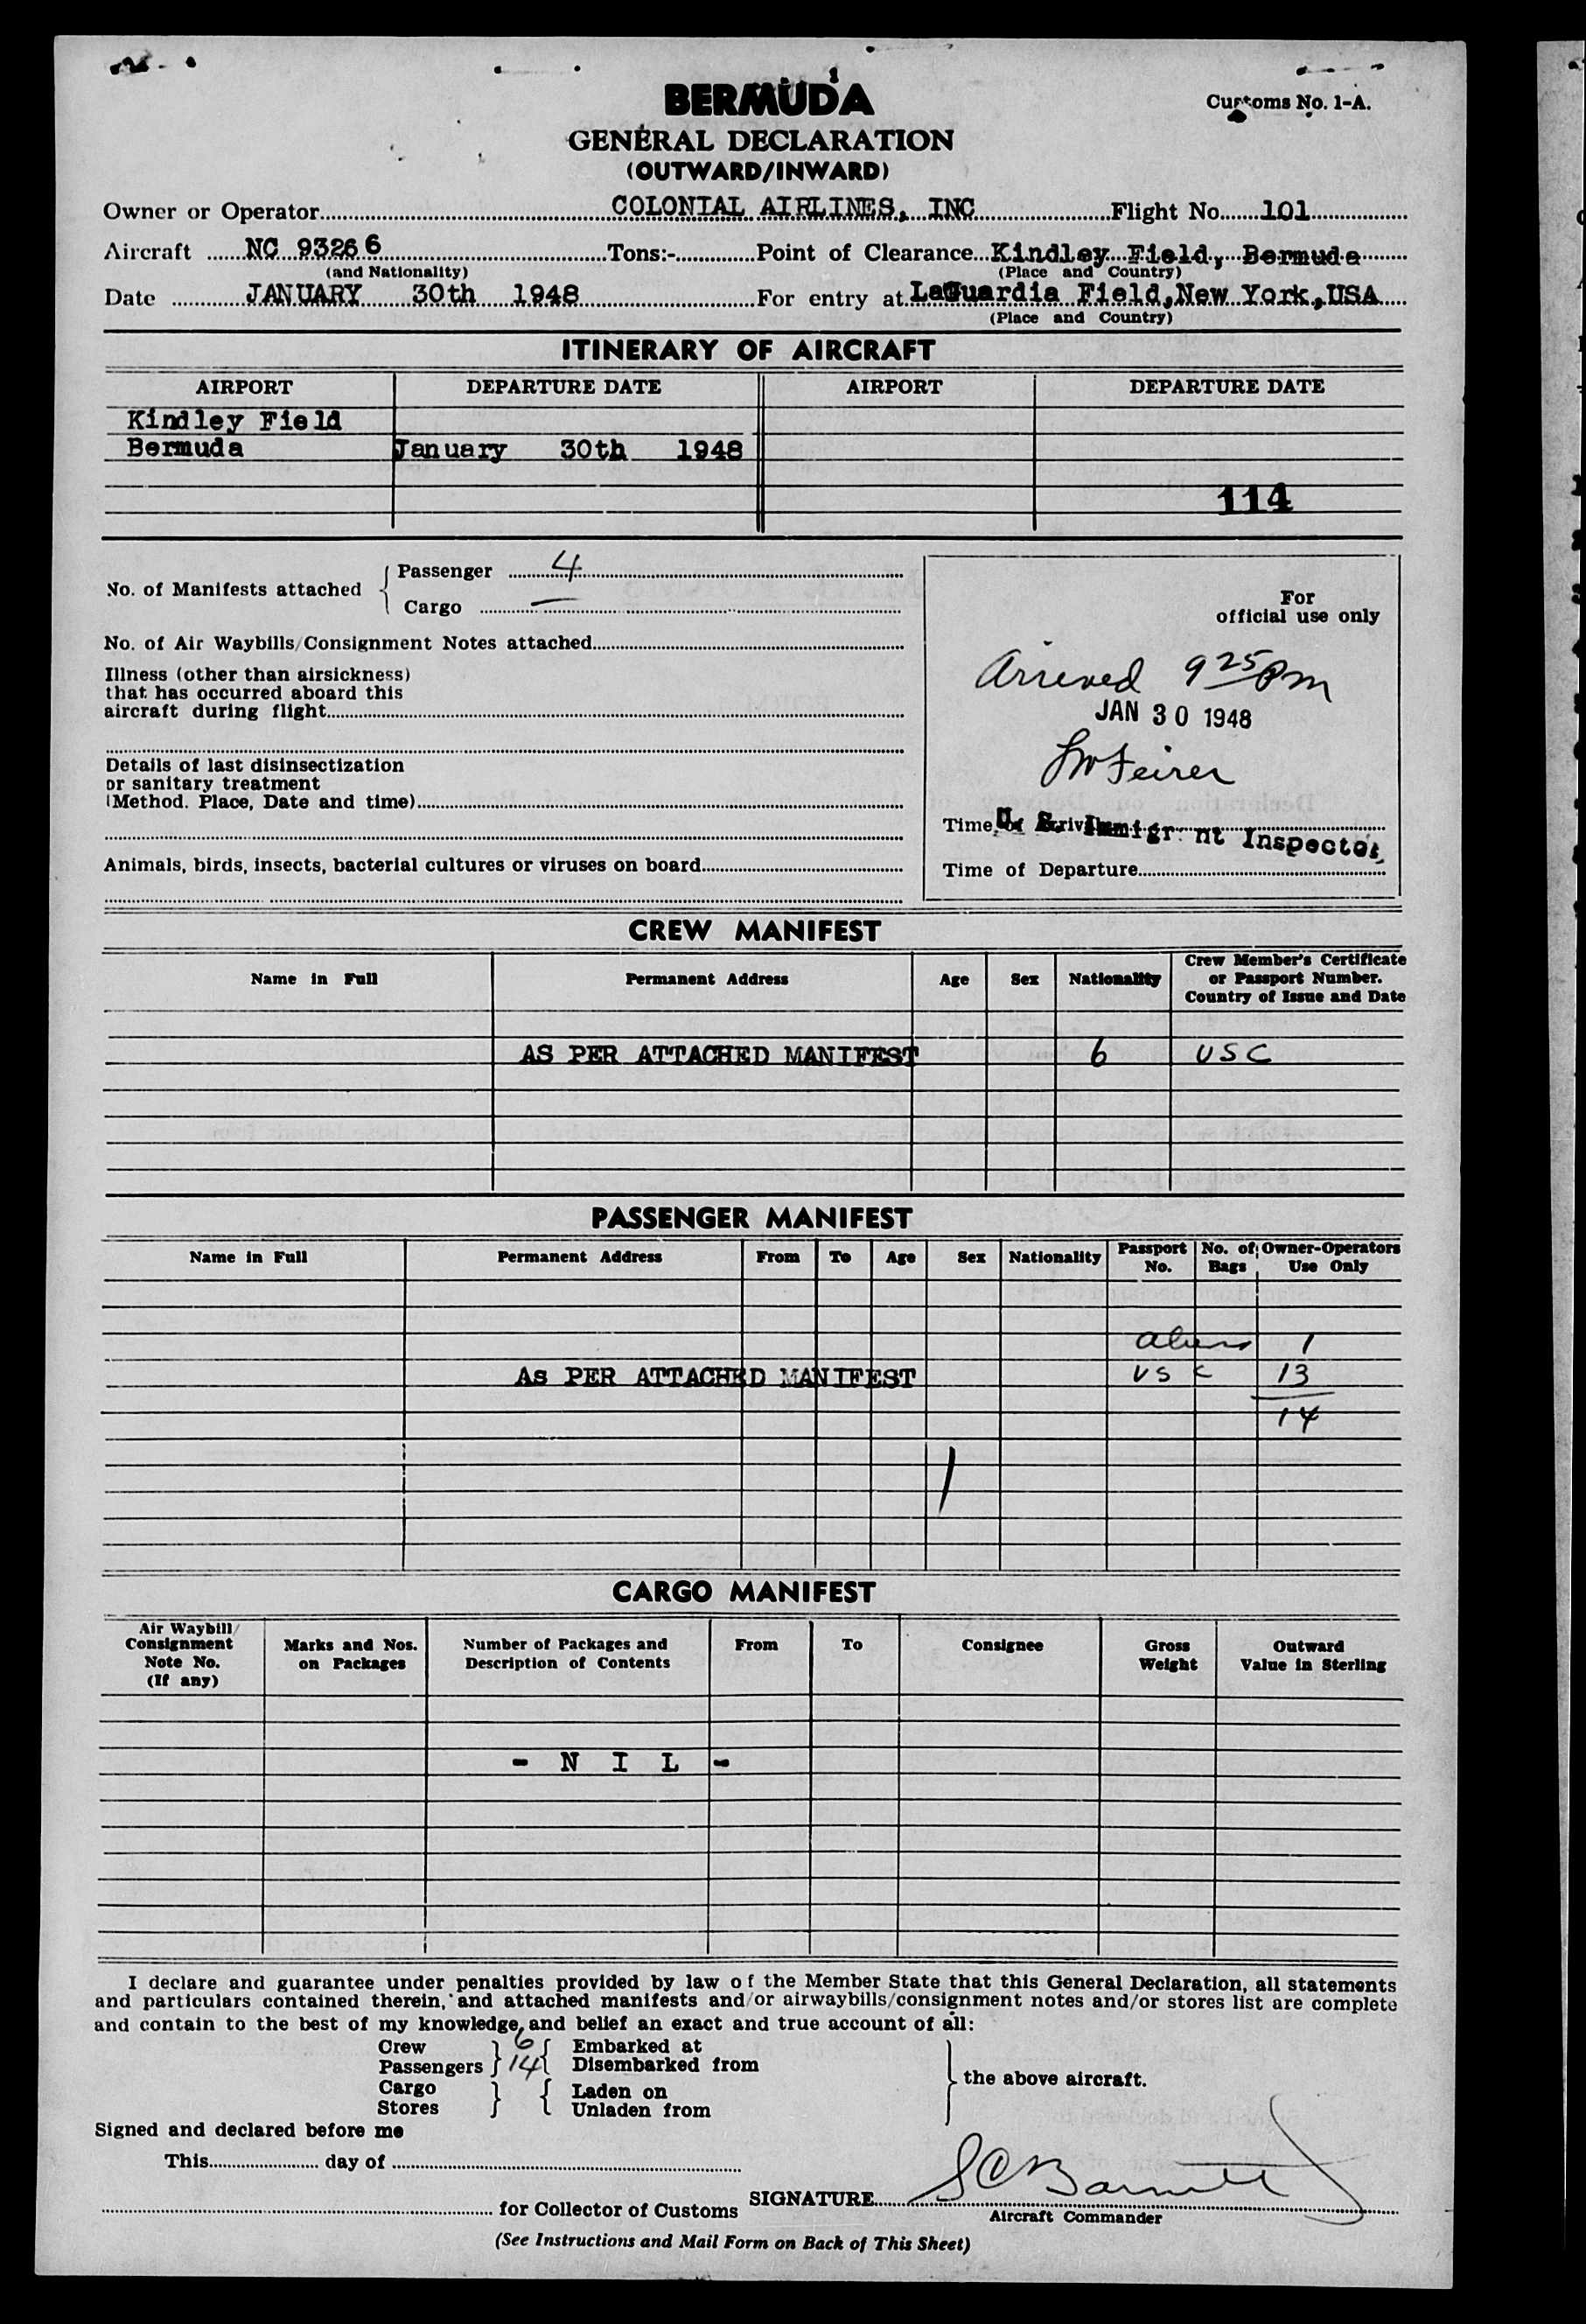 BERMUDA
Customs No. 1-A.
GENERAL DECLARATION
(OUTWARD/INWARD)
Owner or Operator COLONIAL AIRLINES, INC Flight No. 101
Aircraft NC 93266 Tons:- Point of Clearance Kindley Field, Bermuda
(and Nationality) (Place and Country)
Date JANUARY 30th 1948 For entry at LaGuardia Field, New York, USA
(Place and Country)
ITINERARY OF AIRCRAFT
AIRPORT DEPARTURE DATE AIRPORT DEPARTURE DATE
Kindley Field
Bermuda January 30th 1948
114
No. of Manifests attached { Passenger 4
Cargo —
For
official use only
No. of Air Waybills/Consignment Notes attached
Illness (other than airsickness)
that has occurred aboard this
aircraft during flight
Arrived 9 25 Pm
JAN 30 1948
Details of last disinsectization
or sanitary treatment
(Method. Place, Date and time)
Time of Arrival
U. S. Immigrant Inspector
Animals, birds, insects, bacterial cultures or viruses on board
Time of Departure
CREW MANIFEST
Name in Full Permanent Address Age Sex Nationality Crew Member's Certificate
or Passport Number.
Country of Issue and Date
AS PER ATTACHED MANIFEST 6 USC
PASSENGER MANIFEST
Name in Full Permanent Address From To Age Sex Nationality Passport No. No. of Bags Owner-Operators Use Only
aliens 1
As PER ATTACHED MANIFEST USC 13
14
CARGO MANIFEST
Air Waybill/
Consignment
Note No.
(If any)
Marks and Nos.
on Packages
Number of Packages and
Description of Contents
From To Consignee
Gross
Weight
Outward
Value in Sterling
- N I L -
I declare and guarantee under penalties provided by law of the Member State that this General Declaration, all statements
and particulars contained therein, and attached manifests and/or airwaybills/consignment notes and/or stores list are complete
and contain to the best of my knowledge and belief an exact and true account of all:
Crew } 6 { Embarked at
Passengers } 14 { Disembarked from
the above aircraft.
Cargo } { Laden on
Stores } { Unladen from
Signed and declared before me
This day of
for Collector of Customs SIGNATURE
Aircraft Commander
(See Instructions and Mail Form on Back of This Sheet)